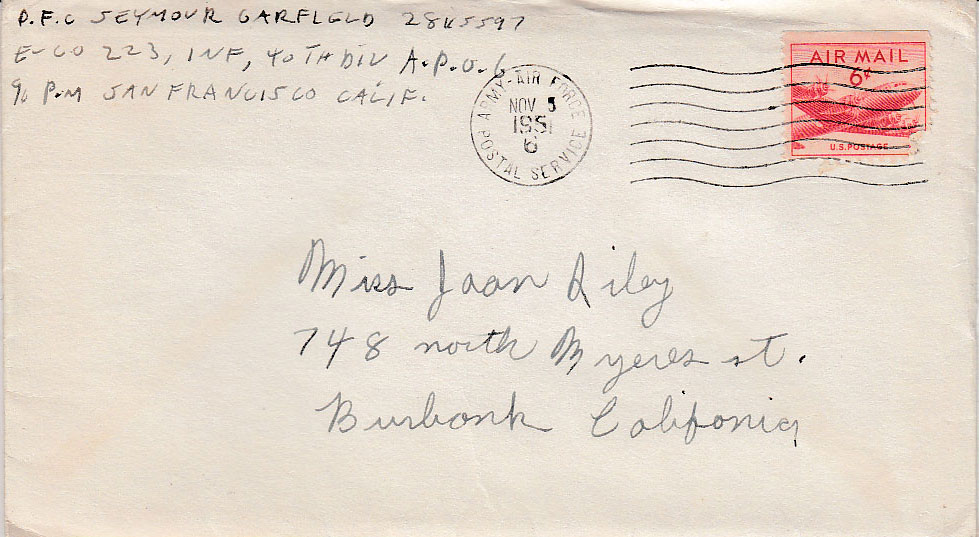 P.F.C SEYMOUR GARFIELD
E-CO 223, INF, 40 TH DIV A.P.O. 6
% P.M SAN FRANCISCO CALIF.
ARMY-AIR FORCE
NOV 5
1951
6
POSTAL SERVICE
AIR MAIL
6¢
U.S. POSTAGE
Miss Joan Riley
748 north Myeres st.
Burbank Califonia